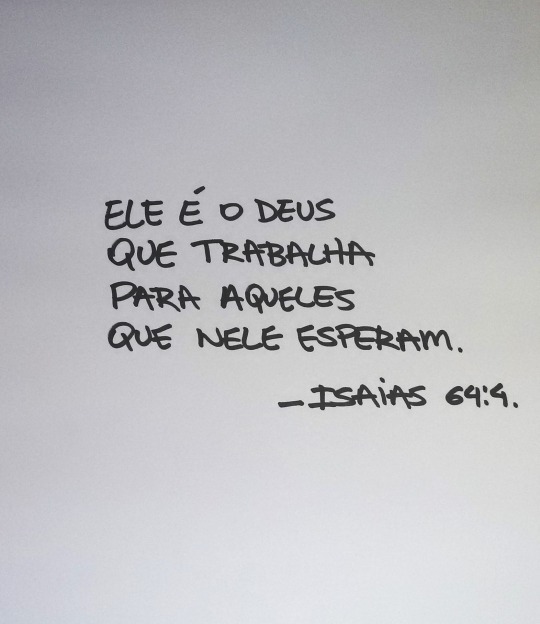 ELE É O DEUS
QUE TRABALHA
PARA AQUELES
QUE NELE ESPERAM.
—ISAiAS 64:4.